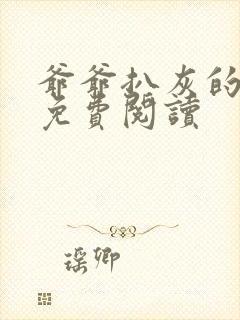 爺爺扒灰的
免費閱讀
瑶卿